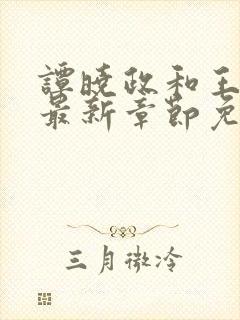 譚曉政和王
最新章節免
三月微冷